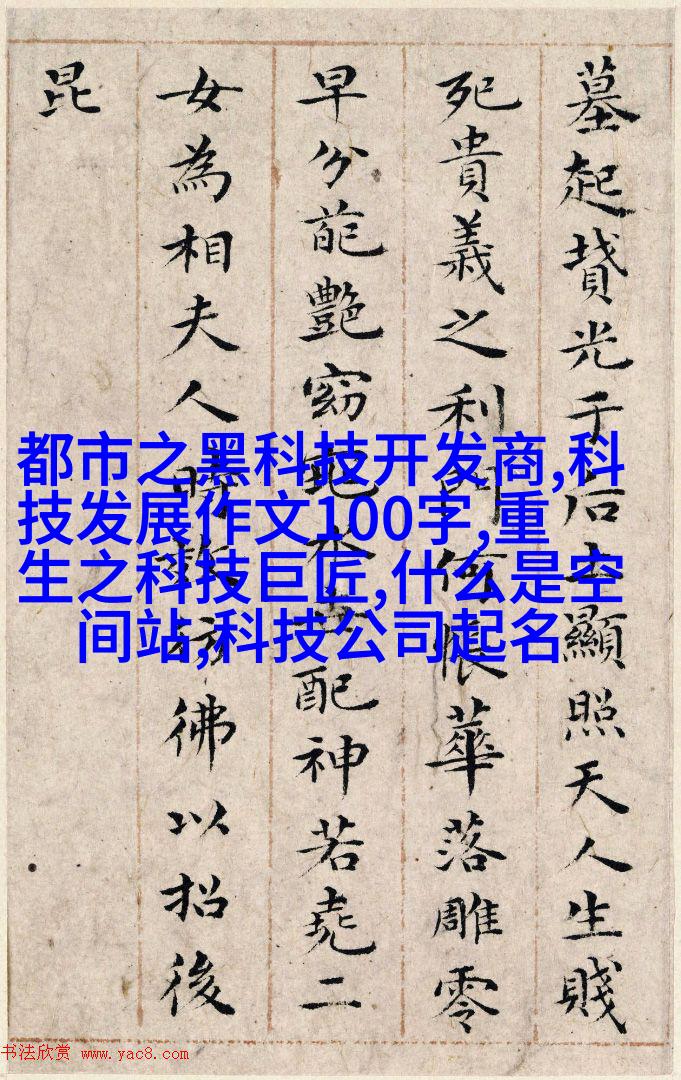 墓起墳光于后土顯照天人生賤
死貴義之利門何悵華落雕零
早分葩艷窈窕永世配神若堯二
女為相夫人時效彷佛以招後
昆
都市之黑科技开发商,科
技发展作文100字,重
生之科技巨匠,什么是空
间站,科技公司起名
书法欣赏 www.yac8.com